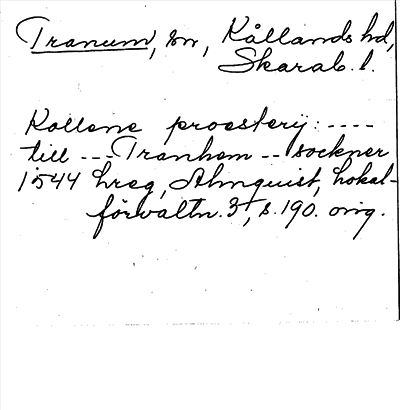 Tranum, sn, Kållands hd,
Skarab. l.
Kollene proesterij: ----
till --- Tranhem -- sockner
1544 hreg, Almquist, Lokal-
förvaltn. 3, s. 190. orig.